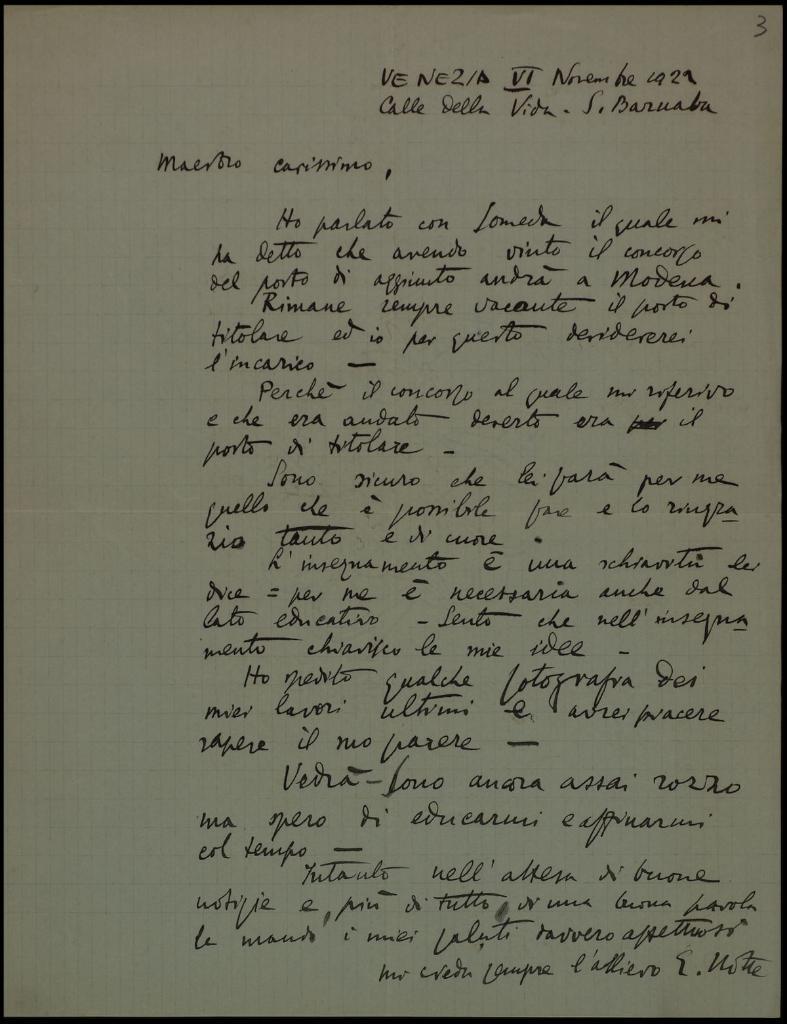 3
VENEZIA VI Novembre 1922
Calle della Vida - S. Barnaba
Maestro carissimo,
Ho parlato con Someda il quale mi
ha detto che avendo vinto il concorso
del posto di aggiunto andrà a Modena.
Rimane sempre vacante il posto di
titolare ed io per questo desidererei
l'incarico —
Perchè il concorso al quale mi riferivo
e che era andato deserto era per il
posto di titolare -
Sono sicuro che lei farà per me
quello che è possibile fare e lo ringra-
zio tanto e di cuore.
L'insegnamento è una schiavitù lei
dice = per me è necessaria anche dal
lato educativo - Sento che nell'insegna-
mento chiarisco le mie idee -
Ho spedito qualche fotografia dei
miei lavori ultimi e avrei piacere
sapere il suo parere —
Vedrà - Sono ancora assai rozzo
ma spero di educarmi e affinarmi
col tempo —
Intanto nell'attesa di buone
notizie e, più di tutto, di una buona parola
le mando i miei saluti davvero affettuosi
mi creda sempre l'allievo E. Notte